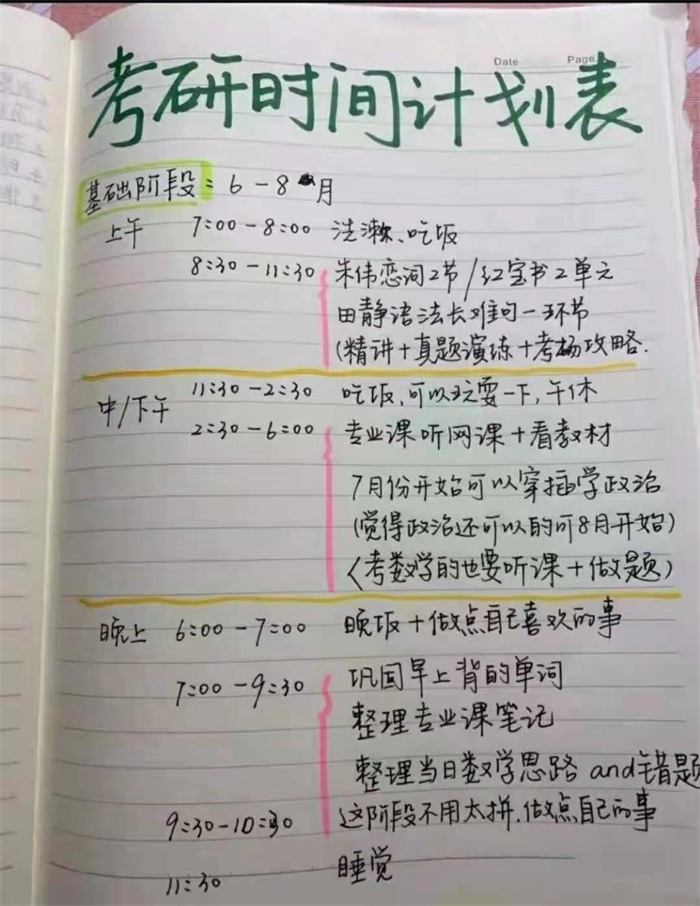 Date Page
考研时间计划表
基础阶段：6-8月
上午 7:00-8:00 洗漱、吃饭
8:30-11:30 朱伟恋词2节/红宝书2单元
田静语法长难句一环节
(精讲+真题演练+考场攻略.
中/下午 11:30-2:30 吃饭,可以玩耍一下,午休
2:30-6:00 专业课听网课+看教材
7月份开始可以穿插学政治
(觉得政治还可以的可8月开始)
(考数学的也要听课+做题)
晚上 6:00-7:00 晚饭+做点自己喜欢的事
7:00-9:30 巩固早上背的单词
整理专业课笔记
整理当日数学思路and错题
9:30-10:30 这阶段不用太拼.做点自己的事
11:30 睡觉